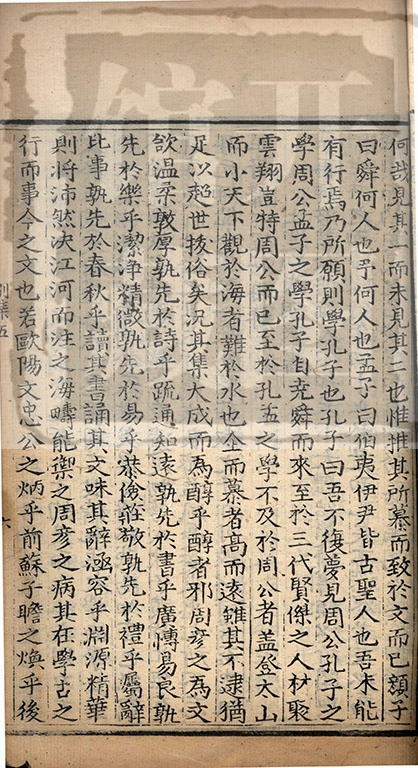 何哉見其一而未見其二也惟推其所慕而致於文而已顔子
曰舜何人也予何人也孟子曰伯夷伊尹皆古聖人也吾未能
有行焉乃所願則學孔子也孔子曰吾不復夢見周公孔子之
學周公孟子之學孔子自堯舜而來至於三代賢傑之人材聚
雲翔豈特周公而已至於孔孟之學不及於周公者盖登太山
而小天下觀於海者難於水也企而慕者高而遠雖其不逮猶
足以超世拔俗矣况其集大成而為醇乎醇者邪周彦之為文
欲温柔敦厚孰先於詩乎疏通知逺孰先於書乎廣博易良孰
先於樂乎潔浄精微孰先於易乎恭儉莊敬孰先於禮乎屬辭
比事孰先於春秋乎讀其書誦其文味其辭涵容乎淵源精華
則將沛然决江河而注之海疇能禦之周彦之病其在學古之
行而事今之文也若歐陽文忠公之炳乎前蘇子瞻之煥乎後
別集五
六